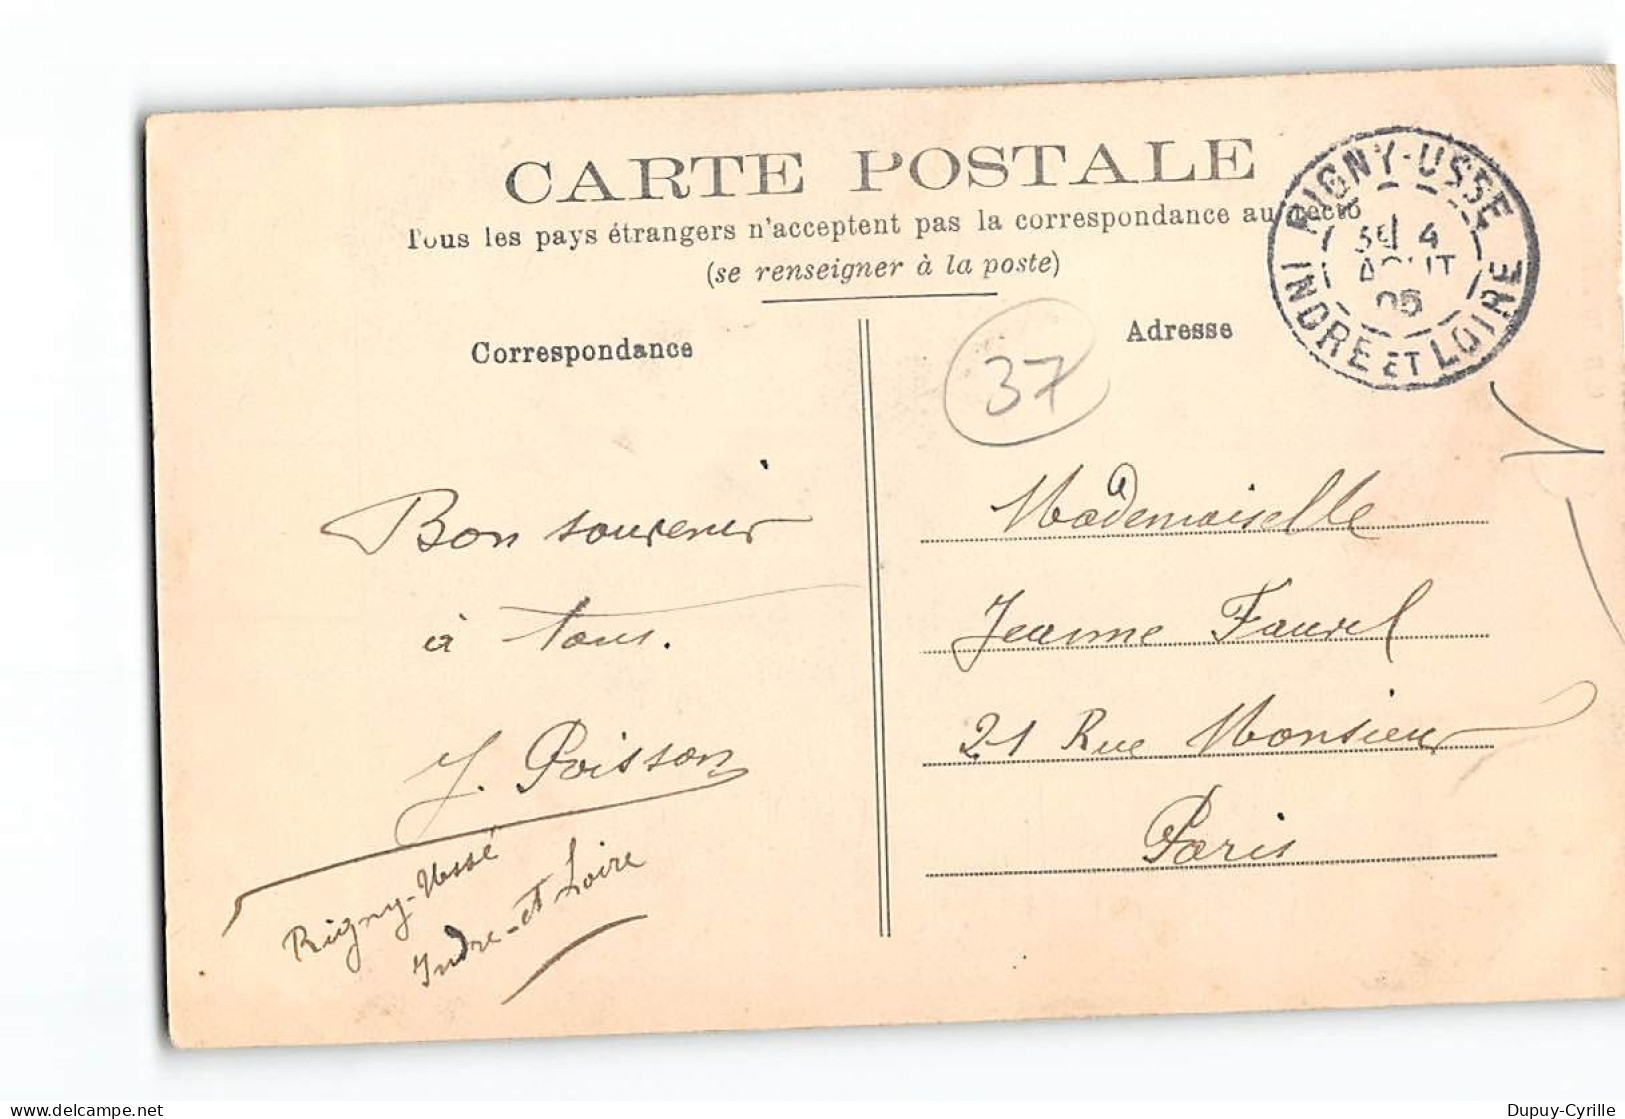 CARTE POSTALE
Tous les pays étrangers n'acceptent pas la correspondance au recto
(se renseigner à la poste)
Correspondance
Adresse
RIGNY-USSE
4
AOUT
05
INDRE ET LOIRE
37
Bon souvenir
à tous.
J. Poisson
Rigny-Ussé
Indre-et Loire
Mademoiselle
Jeanne Fauvel
21 Rue Monsieur
Paris
Dupuy-Cyrille